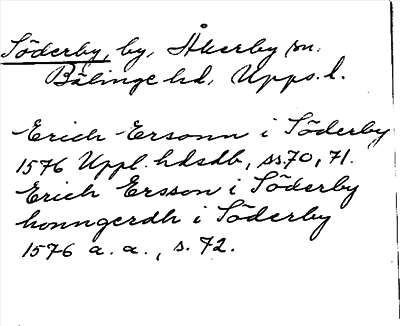 Söderby, by, Åkerby sn.
Bälinge hd, Upps. l.
Erich Ersonn i Söderby
1576 Uppl. hdsdb, ss. 70, 71.
Erich Ersson i Söderby
honngerdh i Söderby
1576 a. a., s. 72.